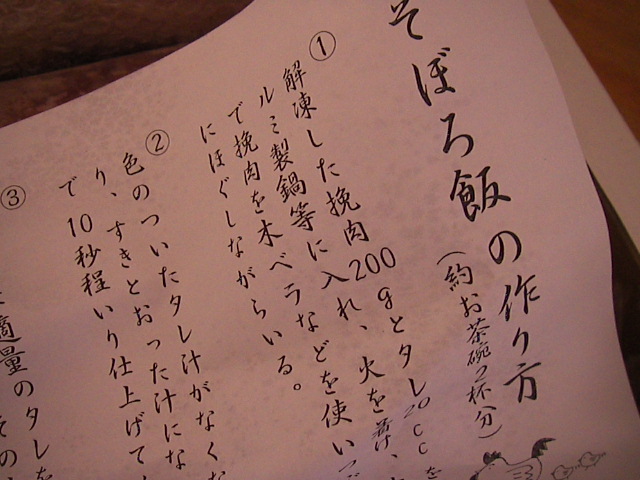 そぼろ飯の作り方
(約お茶碗2杯分)
①
解凍した挽肉200gとタレ20ccを
ルミ製鍋等に入れ、火を
で挽肉を木ベラなどを使い
にほぐしながらいる。
②
色のついたタレ汁がなくな
り、すきとおった汁にな
で10秒程いり仕上げて
③
適量のタレを